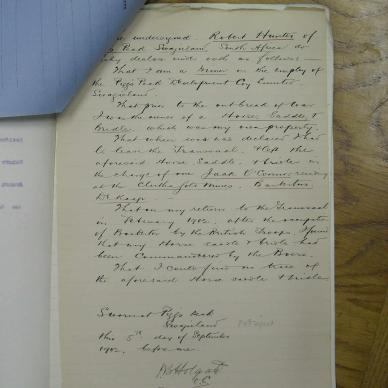 undersigned Robert Hunter of
Peak Swazieland, South Africa do
declare under oath as follows:—
That I am a Miner in the employ of
the Piggs Peak Development Coy Limited
Swazieland.
That prior to the outbreak of war
I was the owner of a Horse, Saddle, &
Bridle which was my own property.
That when war was declared I had
to leave the Transvaal & left the
aforesaid Horse, Saddle, & bridle in
the charge of one Jack O'Connor residing
at the Mines. Barberton
De Kaap.
That on my return to the Transvaal
in February 1902, after the occupation
of Barberton by the British Troops. I found
that my Horse saddle & bridle had
been Commandeered by the Boers.
That I could find no trace of
the aforesaid Horse saddle & bridle.
Sworn at Piggs Peak
Swazieland
this 5th day of September
1902. before me.
Holgate